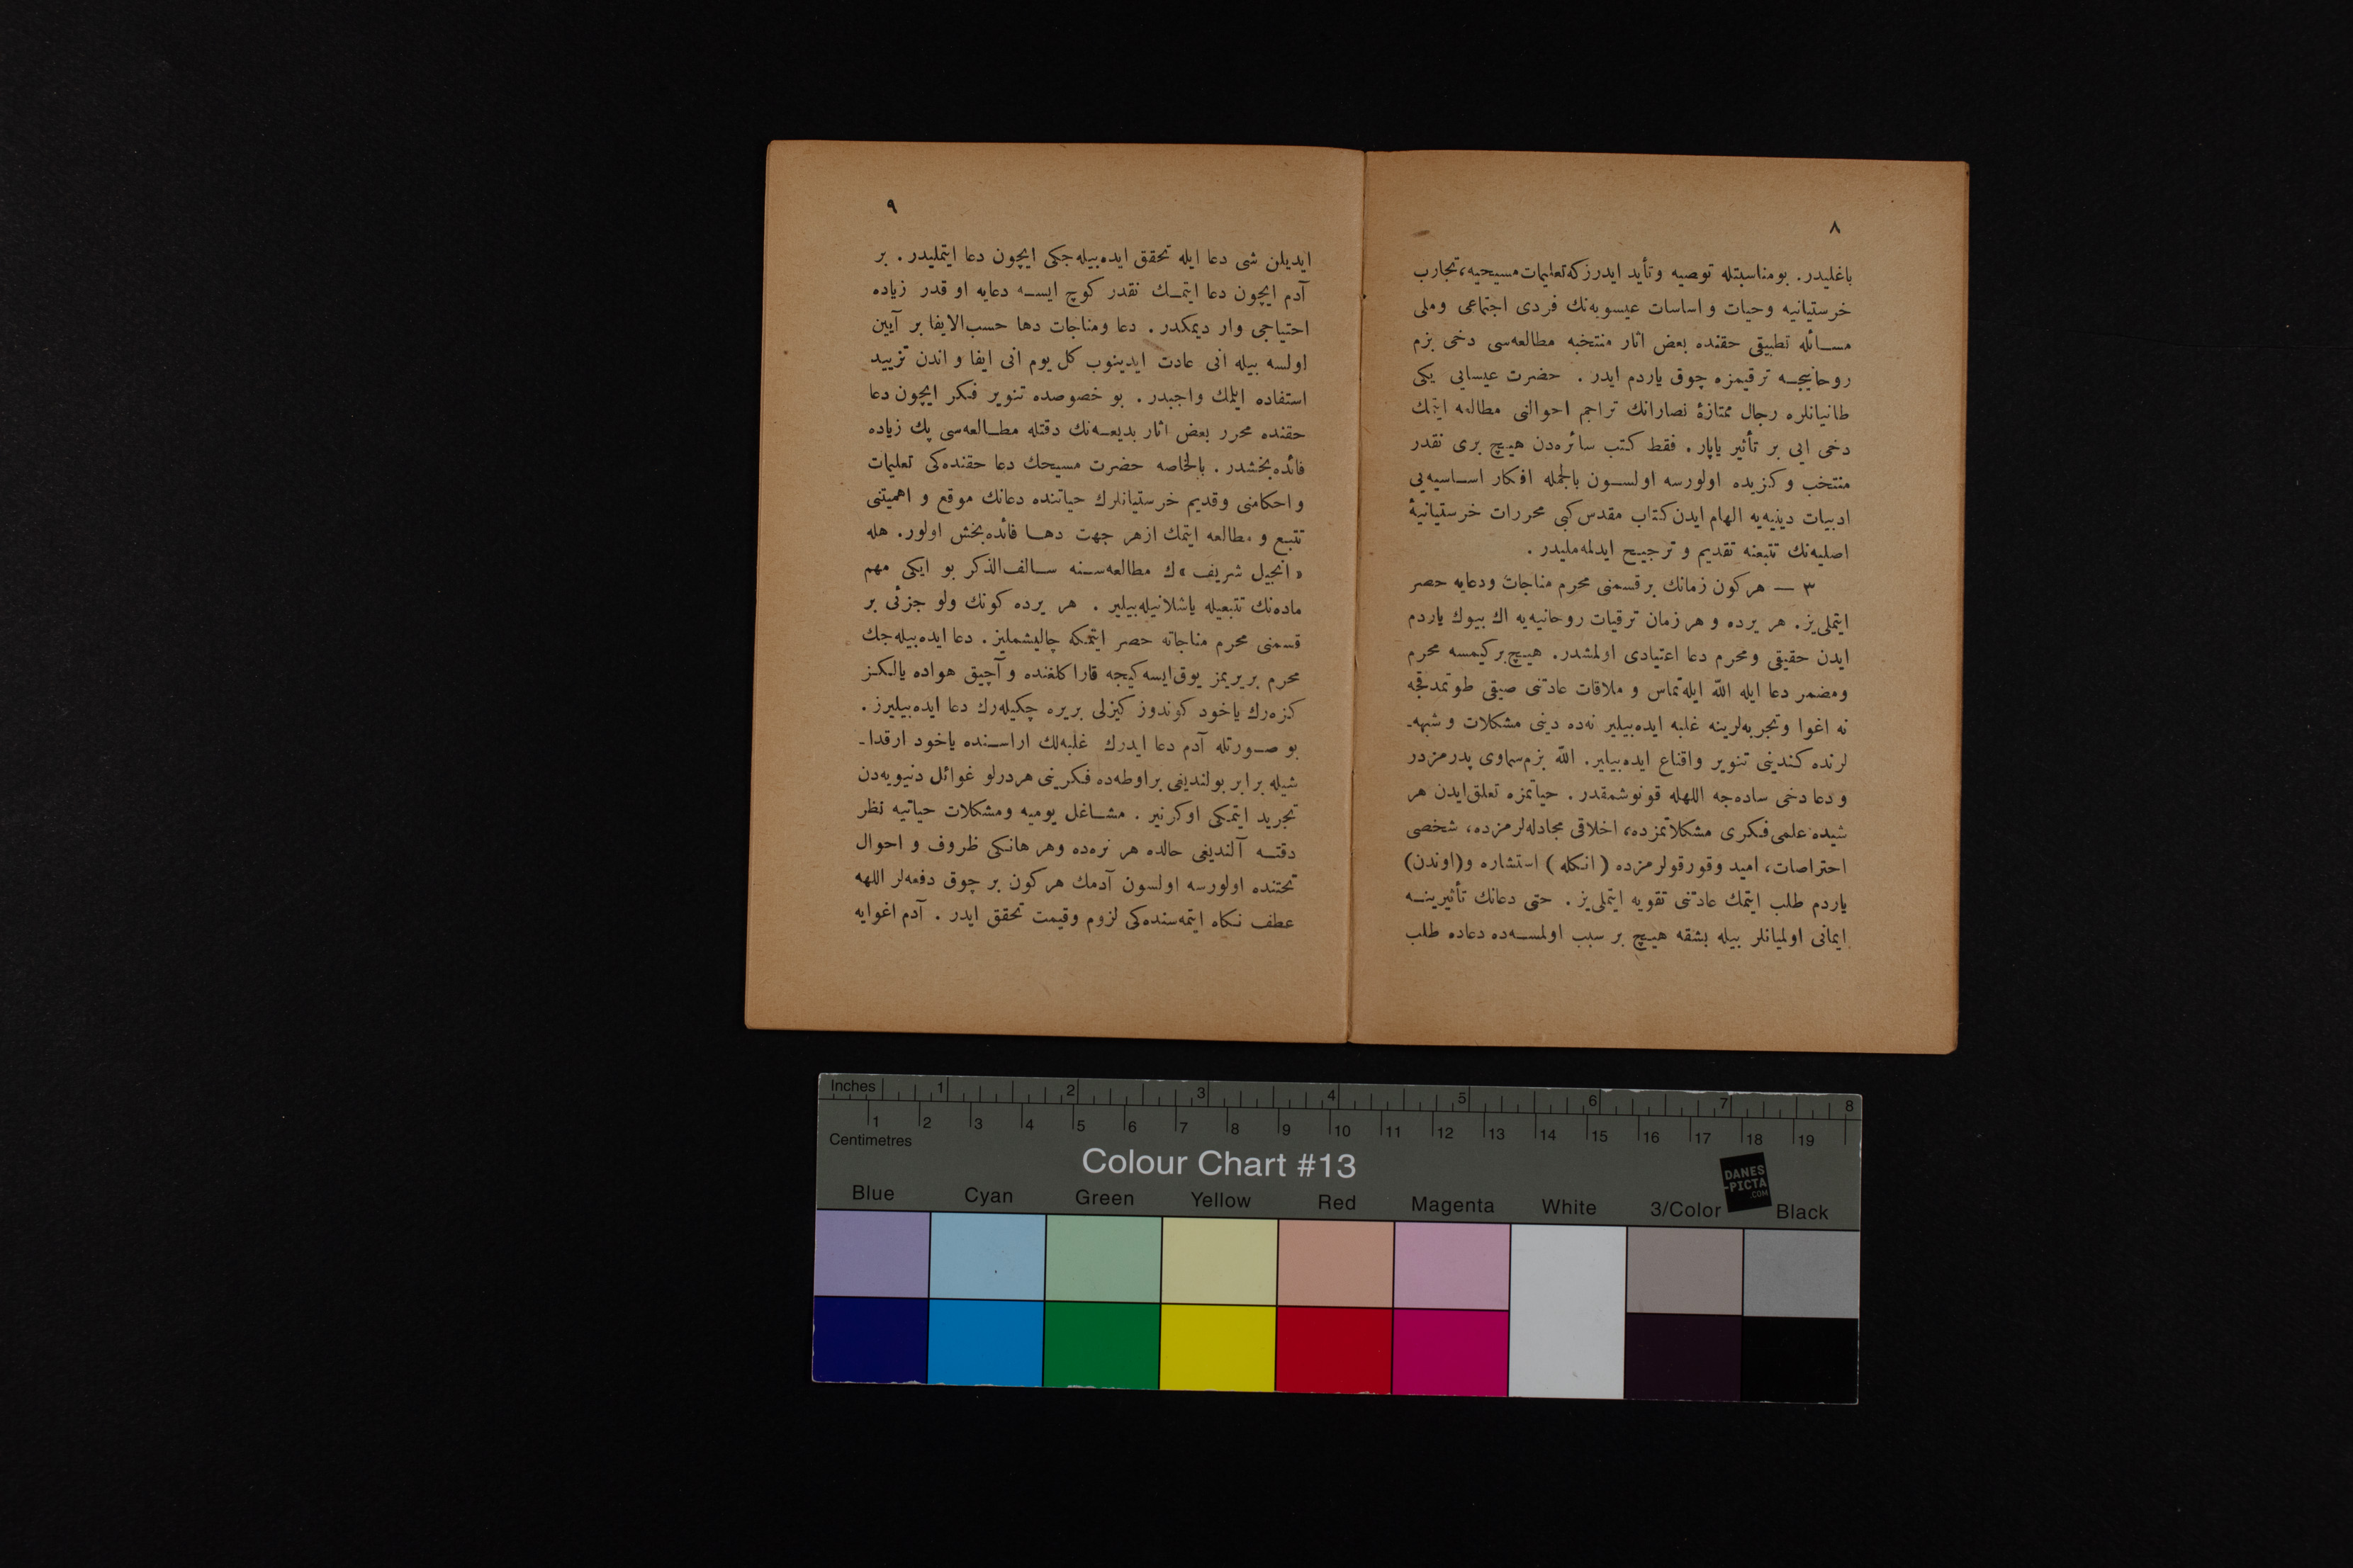 ٨
باغليدر. بومناسبتله توصيه وتأييد ايدرزكه تعليمات مسيحيه، تجارب
خرستيانيه وحيات و اساسات عيسويه‌نك فردى اجتماعى وملى
مسائله تطبيقى حقنده بعض اثار منتخبه مطالعه‌سى دخى بزم
روحانيجه ترقيمزه چوق ياردم ايدر . حضرت عيسايى يكى
طانيانلره رجال ممتازهٔ نصارانك تراجم احوالنى مطالعه ايتمك
دخى ايى بر تأثير ياپار. فقط كتب سائره‌دن هيچ برى نقدر
منتخب و كزيده اولورسه اولسون بالجمله افكار اساسيه‌يى
ادبيات دينيه‌يه الهام ايدن كتاب مقدس كبى محررات خرستيانيهٔ
اصليه‌نك تتبعنه تقديم و ترجيح ايدلمه‌مليدر .
٣ — هركون زمانك برقسمنى محرم مناجات ودعايه حصر
ايتملى‌يز. هر يرده و هر زمان ترقيات روحانيه‌يه اك بيوك ياردم
ايدن حقيقى ومحرم دعا اعتيادى اولمشدر. هيچ بركيمسه محرم
ومضمر دعا ايله الله ايله تماس و ملاقات عادتنى صيقى طوتمدقجه
نه اغوا وتجربه‌لرينه غلبه ايده‌بيلير نه‌ده دينى مشكلات و شبهه‌ـ
لرنده كندينى تنوير واقناع ايده‌بيلير. الله بزم سماوى پدرمزدر
و دعا دخى ساده‌جه اللهله قونوشمقدر . حياتمزه تعلق ايدن هر
شيده علمى فكرى مشكلاتمزده، اخلاقى مجادله‌لرمزده، شخصى
احتراصات، اميد وقورقولرمزده (انكله) استشاره و(اوندن)
ياردم طلب ايتمك عادتنى تقويه ايتملى‌يز . حتى دعانك تأثيرينه
ايمانى اولميانلر بيله بشقه هيچ بر سبب اولمسه‌ده دعاده طلب
٩
ايديلن شى دعا ايله تحقق ايده‌بيله‌جكى ايچون دعا ايتمليدر . بر
آدم ايچون دعا ايتمك نقدر كوچ ايسه دعايه او قدر زياده
احتياجى وار ديمكدر . دعا ومناجات دها حسب‌الايفا بر آيين
اولسه بيله انى عادت ايدينوب كل يوم انى ايفا و اندن تزييد
استفاده ايلمك واجبدر. بو خصوصده تنوير فكر ايچون دعا
حقنده محرر بعض اثار بديعه‌نك دقتله مطالعه‌سى پك زياده
فائده‌بخشدر . بالخاصه حضرت مسيحك دعا حقنده‌كى تعليمات
و احكامنى وقديم خرستيانلرك حياتنده دعانك موقع و اهميتنى
تتبع و مطالعه ايتمك ازهر جهت دها فائده‌بخش اولور. هله
«انجيل شريف»ك مطالعه‌سنه سالف‌الذكر بو ايكى مهم
ماده‌نك تتبعيله باشلانيله‌بيلير . هر يرده كونك ولو جزئى بر
قسمنى محرم مناجاته حصر ايتمكه چاليشمليز. دعا ايده‌بيله‌جك
محرم بريريمز يوق ايسه كيجه قاراكلغنده و آچيق هواده يالكز
كزه‌رك ياخود كوندوز كيزلى بريره چكيله‌رك دعا ايده‌بيليرز .
بو صورتله آدم دعا ايدرك غلبه‌لك اراسنده ياخود ارقداـ
شيله برابر بولنديغى براوطه‌ده فكرينى هردرلو غوائل دنيويه‌دن
تجريد ايتمكى اوكرنير . مشاغل يوميه ومشكلات حياتيه نظر
دقته آلنديغى حالده هر نره‌ده وهر هانكى ظروف و احوال
تحتنده اولورسه اولسون آدمك هركون بر چوق دفعه‌لر اللهه
عطف نكاه ايتمه‌سنده‌كى لزوم وقيمت تحقق ايدر . آدم اغوايه
Inches 1 2 3 4 5 6 7 8
1 2 3 4 5 6 7 8 9 10 11 12 13 14 15 16 17 18 19
Centimetres
Colour Chart #13
DANES
-PICTA
.COM
Blue Cyan Green Yellow Red Magenta White 3/Color Black